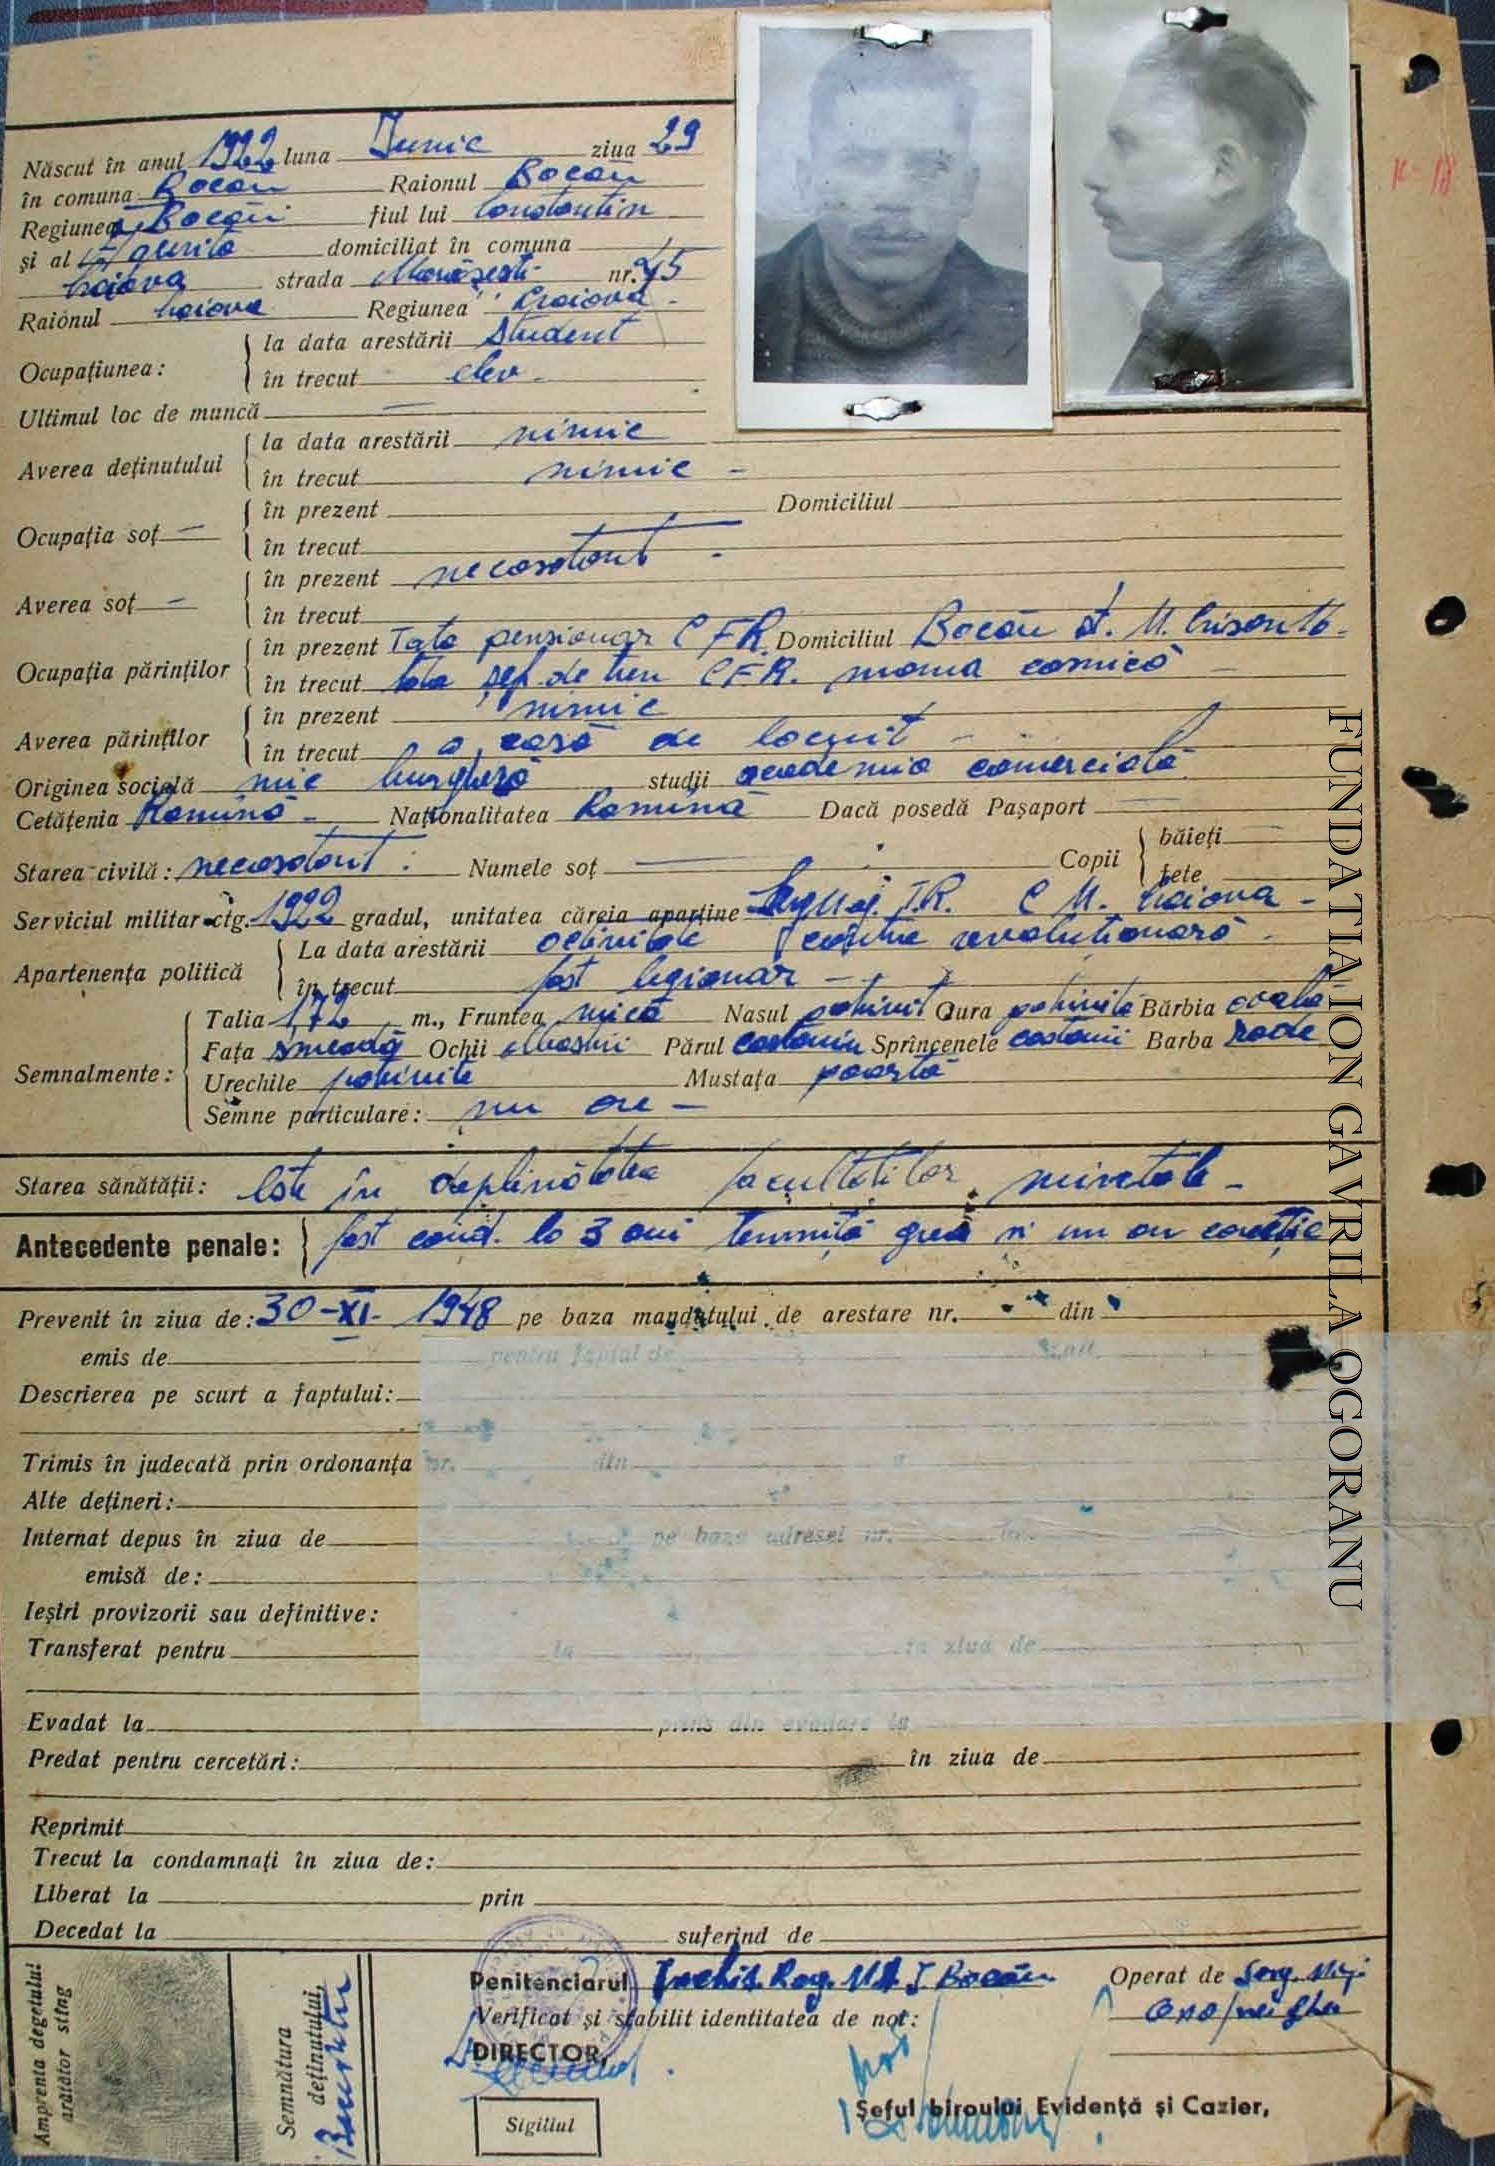 Născut în anul 1922 luna Iunie ziua 29
în comuna Bacău Raionul Bacău
Regiunea Bacău fiul lui Constantin
și al domiciliat în comuna
Craiova strada Mărășești nr. 45
Raionul Craiova Regiunea Craiova
Ocupațiunea: la data arestării student
în trecut elev
Ultimul loc de muncă —
Averea deținutului la data arestării nimic
în trecut nimic
Ocupația soț — în prezent Domiciliul
în trecut
Averea soț — în prezent necăsătorit
în trecut
Ocupația părinților în prezent Tata pensionar CFR. Domiciliul Bacău st. M.
în trecut tata șef de tren CFR. mama casnică
Averea părinților în prezent nimic
în trecut o casă de locuit
Originea socială mic burgheză studii academia comercială
Cetățenia Romînă Naționalitatea Romînă Dacă posedă Pașaport
Starea civilă: necăsătorit Numele soț Copii băieți
fete
Serviciul militar ctg. 1922 gradul, unitatea căreia aparține T.R. C M. Craiova
Apartenența politică La data arestării activitate revoluționară
în trecut fost legionar
Semnalmente: Talia 1,72 m., Fruntea mică Nasul potrivit Gura potrivită Bărbia ovală
Fața smeadă Ochii albaștri Părul castaniu Sprîncenele castanii Barba rade
Urechile potrivite Mustața poartă
Semne particulare: nu are —
Starea sănătății: Este în deplinătatea facultăților mintale —
Antecedente penale: fost cond. la 3 ani temniță grea și un an corecție
Prevenit în ziua de: 30-XI-1948 pe baza mandatului de arestare nr. din
emis de pentru faptul de
Descrierea pe scurt a faptului:
Trimis în judecată prin ordonanța nr. din
Alte dețineri:
Internat depus în ziua de pe baza adresei nr.
emisă de:
Ieșiri provizorii sau definitive:
Transferat pentru la în ziua de
Evadat la prins din evadare la
Predat pentru cercetări: în ziua de
Reprimit
Trecut la condamnați în ziua de:
Liberat la prin
Decedat la suferind de
Amprenta degetului arătător stîng
Semnătura deținutului,
Penitenciarul Închis. Reg. M.A.I. Bacău
Verificat și stabilit identitatea de noi:
DIRECTOR,
Sigiliul
Operat de Serg. Maj.
Șeful biroului Evidență și Cazier,
FUNDATIA ION GAVRILA OGORANU